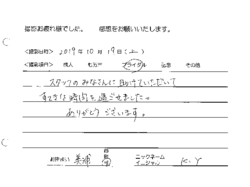 撮影お疲れ様でした。 感想をお願いいたします。
<撮影日時> 2019年10月19日(土)
<撮影場所> 成人 七五三 ブライダル 記念 その他
スタッフのみなさんに助けていただいて
すてきな時間を過ごせました。
ありがとうございます。
お住まい
ニックネーム
イニシャル K.Y